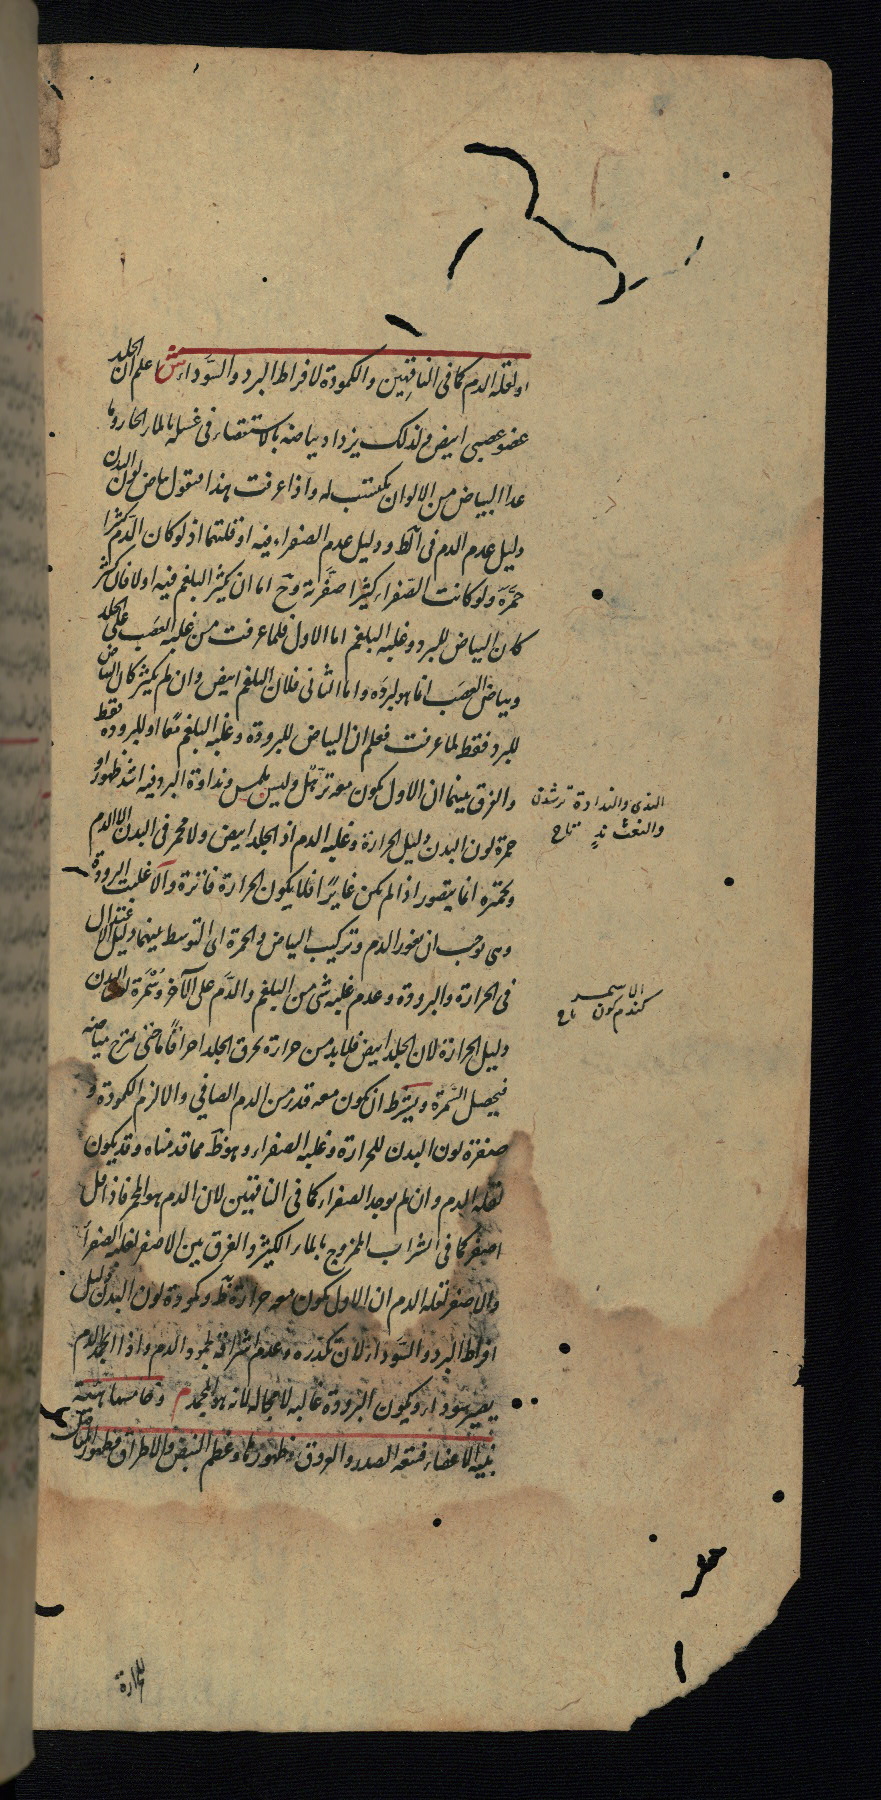 او لقلة الدم كما فى الناقهين والكمودة لافراط البرد والسوداء ش اعلم ان الجلد
عضو عصبى ابيض ولذلك يزداد بياضه بالاستقصاء فى غسله بالماء الحار وما
عدا البياض من الالوان مكتسب له واذا عرفت هذا فنقول بياض لون البدن
دليل عدم الدم فى الظ ودليل عدم الصفراء فيه او قلتهما اذ لو كان الدم كثيرا
حمّره ولو كانت الصفراء كثيرا صفّرته وح اما ان يكثر البلغم فيه او لا فان كثر
كان البياض للبرد وغلبة البلغم اما الاول فلما عرفت من غلبة العصب على الجلد
وبياض العصب انما هو لبرده واما الثانى فلان البلغم ابيض وان لم يكثر كان البياض
للبرد فقط لما عرفت فعلم ان البياض للبرودة وغلبة البلغم معا او للبرودة فقط
والفرق بينهما ان الاول يكون معه ترهّل ولين ملمس ونداوة البرد فيه اشد ظهورا و
حمرة لون البدن دليل الحرارة وغلبة الدم اذ الجلد ابيض ولا محمر فى البدن الا الدم
وتحمّره انما يتصور اذا لم يكن غايرًا فلا يكون الحرارة فاترة والا غلبت البرودة
وهى توجب ان يغور الدم وتركيب البياض والحمرة اى التوسط بينهما دليل الاعتدال
فى الحرارة والبرودة وعدم غلبة شى من البلغم والدم على الآخر وسُمْرة لون البدن
دليل الحرارة لان الجلد ابيض فلا بد من حرارة تحرق الجلد احراقًا ما حتى تمزج بياضه
فيحصل السمرة ويشترط ان يكون معه قدر من الدم الصافى والا لزم الكمودة و
صفرة لون البدن للحرارة وغلبة الصفراء وهو ظ مما قدمناه وقد يكون
لقلة الدم وان لم يوجد الصفراء كما فى الناقهين لان الدم هو المحمر فاذا قل
اصفر كما فى الشراب الممزوج بالماء الكثير والفرق بين الاصفر لغلبة الصفراء
والاصفر لقلة الدم ان الاول يكون معه حرارة ظ وكمودة لون البدن دليل
افراط البرد والسوداء لان تكدره وعدم اشراقه لجمود الدم واذا انجمد الدم
يصير سوداء ويكون البرودة غالبة لا محالة لانه هو المجمد م وخامسها هيئة
بنية الاعضاء فسعة الصدر والعروق وظهورها وعظم النبض والاطراف وظهور المفاصل
للحرارة
الندى والنداوة ترشدن
والنعت ندٍ تاج
الاسمر
كندم كون تاج